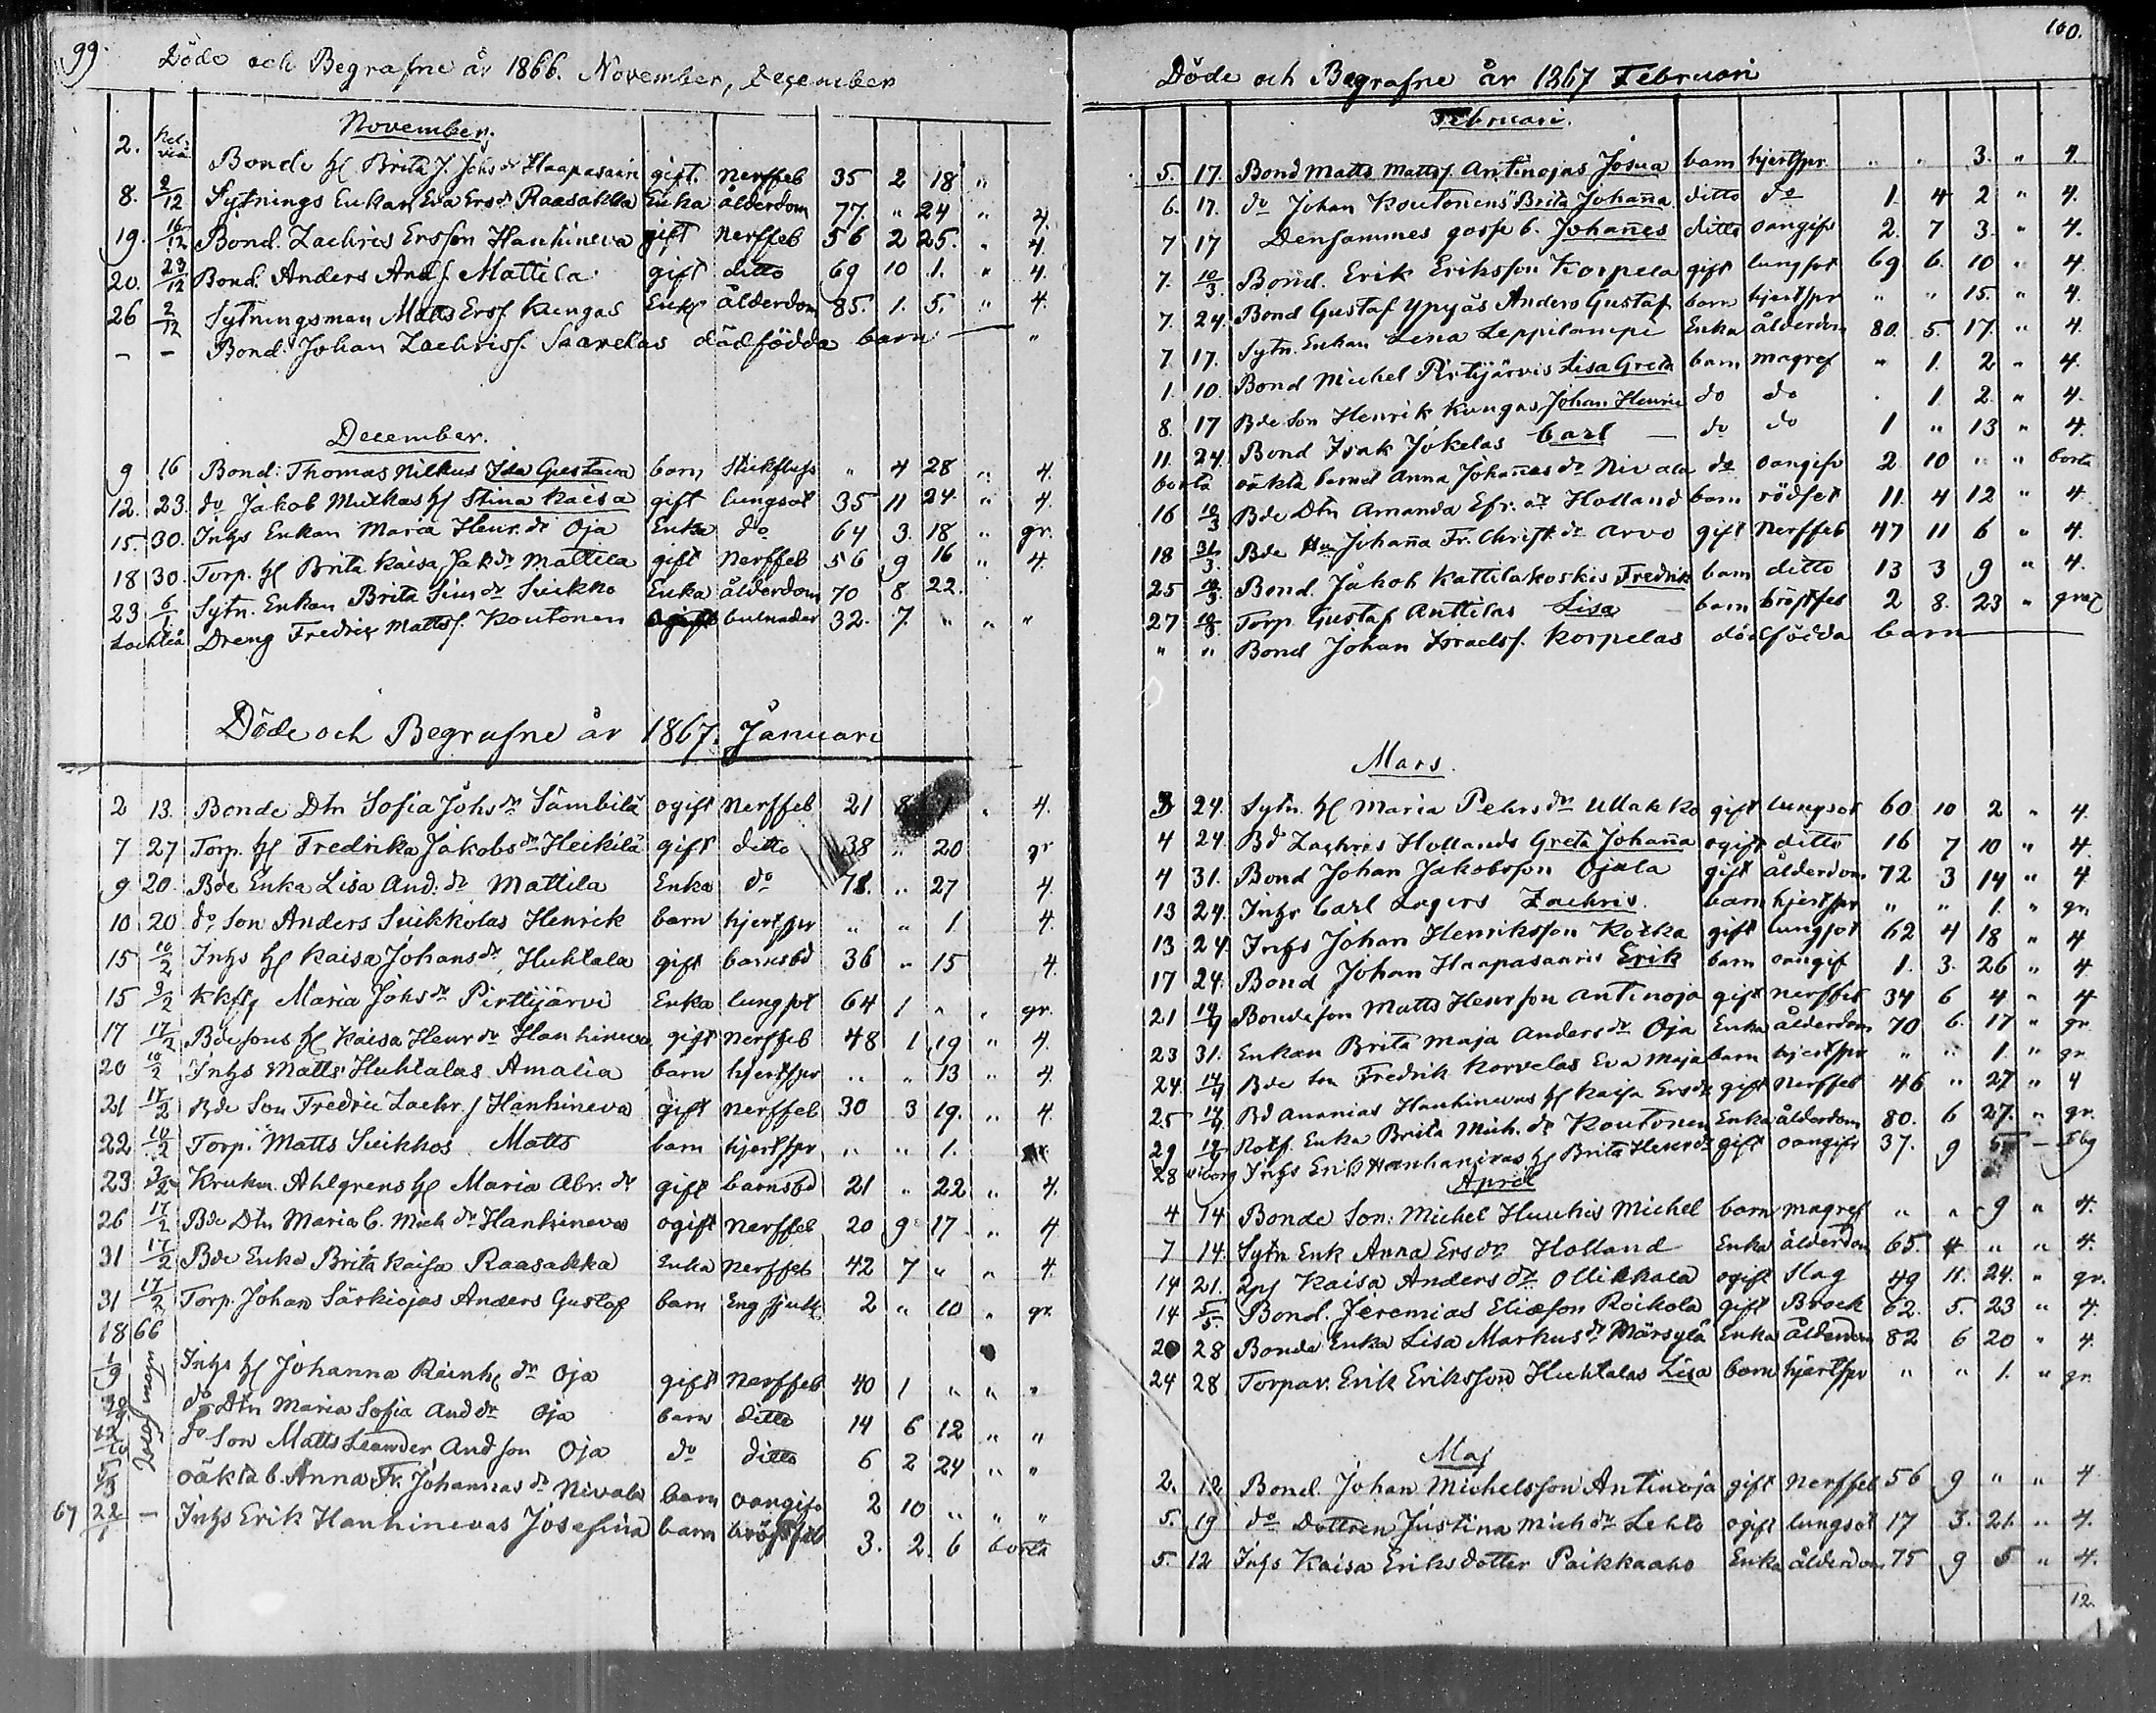 99.
Döde och Begrafne år 1866. November, December
November.
2. Bonde hu Brita J. Johs dr Haapasaari gift. Nerffeb 35 2 18 "
8. 9/12 Sytnings Enkan Eva Ersdr Raasakka Enka ålderdom 77. " 24 " 4.
19. 16/12 Bond. Zachris Ersson Hanhineva gift Nerffeb 56 2 25. " 4.
20. 23/12 Bond. Anders Ands Mattila gift ditto 69 10 1. " 4.
26 2/12 Sytningsman Matts Ersf Kangas Enkl ålderdom 85. 1. 5. " 4.
- - Bond. Johan Zachriss. Saarelas dödfödda barn — "
December.
9 16 Bond: Thomas Nilkus Ida Gustava barn Stickfluss " 4 28 " 4.
12. 23. do Jakob Mutkas hu Stina Kaisa gift lungsot 35 11 24. " 4.
15. 30. Inhs Enkan Maria Henr. dr Oja Enka do 64 3. 18 " gr.
18 30. Torp. hu Brita Kaisa Jak dr Mattila gift Nerffeb 56 9 16 " 4.
23 6/1 Sytn. Enkan Brita Sim dr Suikko Enka ålderdom 70 8 22.
Lochteå Dreng Fredrik Mattss. Koutonen ogift bulnader 32. 7. " " "
Döde och Begrafne år 1867. Januari
2 13. Bonde Dtn Sofia Johs dr Sämbilä ogift Nerffeb 21 8 " 4.
7 27 Torp. hu Fredrika Jakobs dr Heikilä gift ditto 38 " 20 gr
9 20. Bde Enka Lisa And. dr Mattila Enka do 78. " 27 4.
10 20 do Son Anders Suikkolas Henrik barn hjertspr " " 1 4.
15 10/2 Inhs hu Kaisa Johans dr Huhtala gift barnsbd 36 " 15 4.
15 3/2 Maria Johs dr Pirttijärvi Enka lungsot 64 1 " " gr.
17 17/2 Bdesons hu Kaisa Henr dr Hanhineva gift Nerffeb 48 1 19 " 4.
20 10/2 Inhs Matts Huhtalas Amalia barn hjertspr " " 13 " 4.
21 17/2 Bde Son Fredric Zachr. s Hanhineva gift Nerffeb 30 3 19. " 4.
22 10/2 Torp. Matts Suikkos Matts barn hjertspr " " 1.
23 3/2 Krukm. Ahlgrens hu Maria Abr. dr gift barnsbd 21 " 22 " 4.
26 17/2 Bde Dtn Maria C. Mich dr Hanhineva ogift Nerffeb 20 9 17 " 4
31 17/2 Bde Enka Brita Kaisa Raasakka Enka Nerffeb 42 7 " " 4.
31 17/2 Torp. Johan Särkiojas Anders Gustaf barn Eng sjuk 2 " 10 " gr.
1866
1/9 Inhs hu Johanna Reinh dr Oja gift Nerffeb 40 1 " " "
do Dtn Maria Sofia And dr Oja barn ditto 14 6 12 " "
12/10 do Son Matts Leander And son Oja do ditto 6 2 24 " "
oäkta b. Anna Fr. Johannas dr Nivala barn oangifv 2 10 " " "
67 22/1 - Inhs Erik Hanhinevas Josefina barn bröstfeb 3. 2. 6 borta
100.
Döde och Begrafne år 1867 Februari
Februari.
5. 17. Bond Matts Mattss. Antinojas Josua barn hjertspr " " 3. " 4.
6. 17. do Johan Koutonens Brita Johanna ditto do 1. 4 2 " 4.
7 17 Densammes gosse b. Johannes ditto oangifv 2. 7 3. " 4.
7. 10/3 Bond. Erik Eriksson Korpela gift lungsot 69 6. 10 " 4
7. 24 Bond Gustaf Ypyäs Anders Gustaf barn hjertspr " " 15. " 4.
7 17. Sytn. Enkan Lena Leppilampi Enka ålderdom 80. 5. 17. " 4.
1. 10. Bond Michel Pirttijärvis Lisa Greta barn magref " 1. 2 " 4.
8. 17 Bde Son Henrik Kangas Johan Henric do do . 1. 2. " 4.
11. 24. Bond Isak Jokelas Carl — do do 1 " 13 " 4.
borta oäkta barnet Anna Johannas dr Nivala do oangifv 2 10 " " borta
16 10/3 Bde Dtn Amanda Efr. dr Holland barn rödsot 11. 4 12 " 4.
18 31/3 Bde Hu Johanna Fr. Christ. dr Arvo gift Nerffeb 47 11 6 " 4.
25 10/3 Bond. Jakob Kattilakoskis Fredrik barn ditto 13 3 9 " 4.
27 10/3 Torp Gustaf Anttilas Lisa barn bröstfeb 2 8. 23 "
" " Bond Johan Israelss. Korpelas dödfödda barn
Mars.
3 24. Sytn. hu Maria Pehrs dr Ullakko gift lungsot 60 10 2 " 4.
4 24 Bd Zachris Hollands Greta Johanna ogift ditto 16 7 10 " 4.
4 31. Bond Johan Jakobsson Ojala gift ålderdom 72 3 14 " 4
13 24. Inhs Carl Lagers Zachris. barn hjertspr " " 1. " gr.
13 24. Inhs Johan Henriksson Kotka gift lungsot 62 4 18 " 4
17 24. Bond Johan Haapasaaris Erik barn oangif 1. 3. 26 " 4
21 14/4 Bondeson Matts Henrson Antinoja gift nerffeb 34 6 4 " 4
23 31. Enkan Brita Maja Anders dr Oja Enka ålderdom 70 6. 17 " gr
24. 14/4 Bde Son Fredrik Korvelas Eva Maja barn hjertspr " " 1. " gr
25 14/4 Bd Ananias Hanhinevas hu Kaisa Ersdr gift Nerffeb 46 " 27 " 4
29 14/4 Rotf. Enka Brita Mich. dr Koutonen Enka ålderdom 80. 6 27. " gr.
28 Viborg Inhs Erik Hanhanivas hu Brita Henr dr gift oangifv 37. 9 —
April
4 14 Bonde Son: Michel Huuhis Michel barn magref " " 9 " 4.
7 14. Sytn Enk Anna Ersdr. Holland Enka ålderdom 65. 4 " " 4.
14 21. Kaisa Anders dr Ollikkala ogift Slag 49 11. 24. " gr.
14 5/5. Bond. Jeremias Eliasson Roikola gift Brock 62. 5. 23 " 4.
20 28 Bonde Enka Lisa Markus dr Märsylä Enka ålderdom 82 6 20 " 4.
24 28 Torpar. Erik Eriksson Huhtalas Lisa barn hjertspr " " 1. " gr.
Maj
2. 12 Bond. Johan Michelsson Antinoja gift Nerffeb 56 9 " " 4
5. 19 do Dottren Justina Mich dr Lehto ogift lungsot 17 3. 21. " 4.
5. 12 Inhs Kaisa Eriksdotter Paikkaaho Enka ålderdom 75 9 5 " 4.
12.